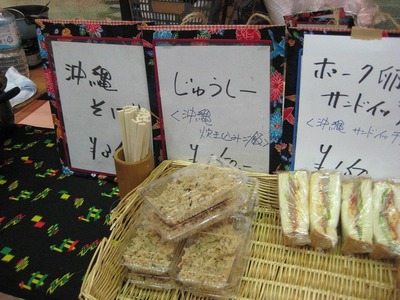 沖縄
そば
じゅうしー
<沖縄
炊き込みご飯>
ポーク卵
サンドイッチ
<沖縄 サンドイッチ